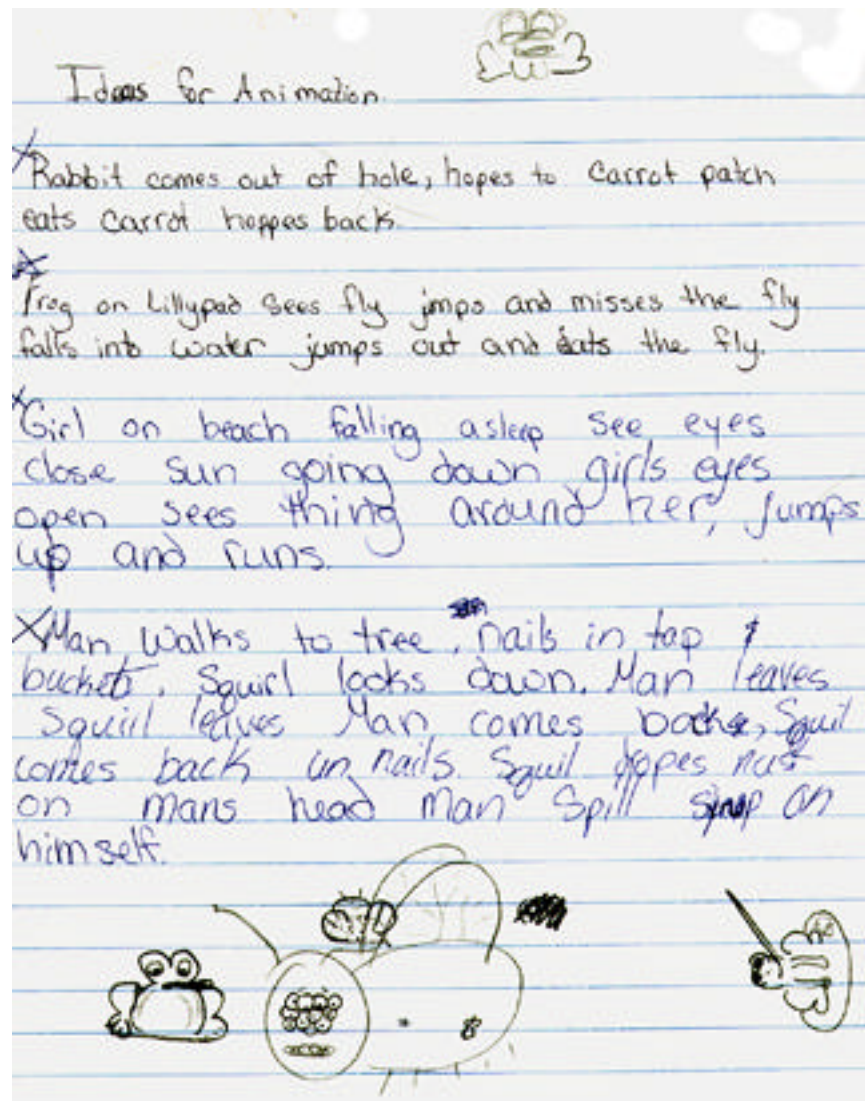 Ideas for Animation.
Rabbit comes out of hole, hopes to Carrot patch
eats Carrot hoppes back.
Frog on Lillypad Sees fly jmps and misses the fly
falls into water jumps out and eats the fly.
Girl on beach falling asleep see eyes
close sun going down girls eyes
open sees thing around her, jumps
up and runs.
Man walks to tree, nails in tap &
buckets. Squirl looks down. Man leaves
Squirl leaves Man comes back, Squil
comes back un nails. Squil dropes nut
on mans head man Spill syrup on
himself.